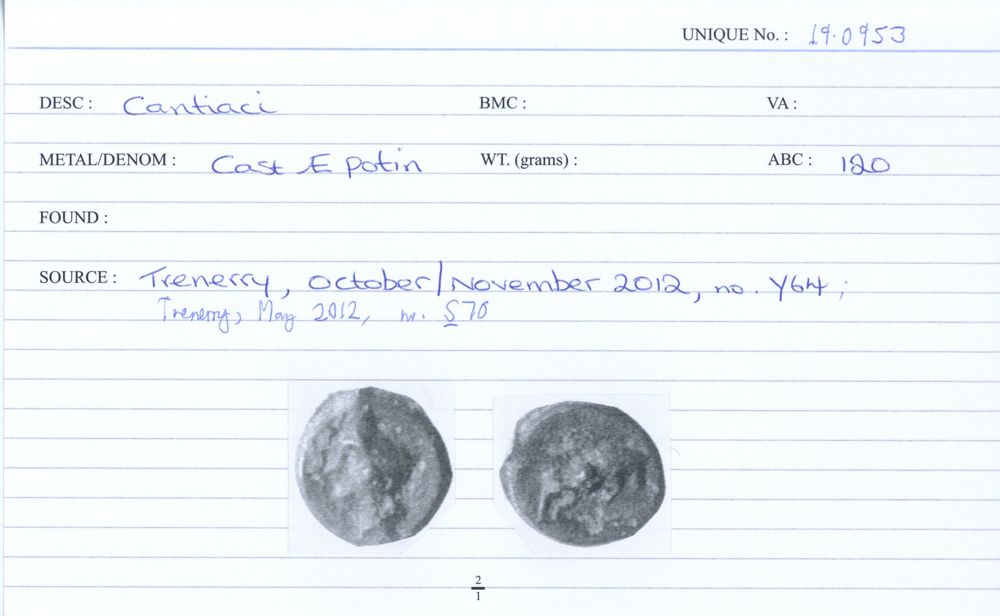 UNIQUE No. : 19.0953
DESC : Cantiaci BMC : VA :
METAL/DENOM : Cast Æ potin WT. (grams) : ABC : 120
FOUND :
SOURCE : Trenerry, October/November 2012, no. Y64;
Trenerry, May 2012, no. S70
2
1